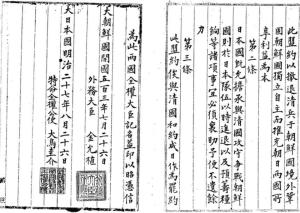 此盟約以撤退清兵于朝鮮國境外鞏
固朝鮮國獨立自主而推充朝日兩國所
享利益為本
第二條
日本國既允擔承與清國攻守爭戰朝鮮
國則於日本隊伍以時進退以及預籌糧
餉等諸項事宜必須襄助予便不遺餘
力
第三條
此盟約俟與清國和約成日作為罷約
為此兩國全權大臣記名蓋印以昭憑信
大朝鮮國開國五百三年七月二十六日
外務大臣 金允植
大日本國明治二十七年八月二十六日
特命全權公使 大鳥圭介